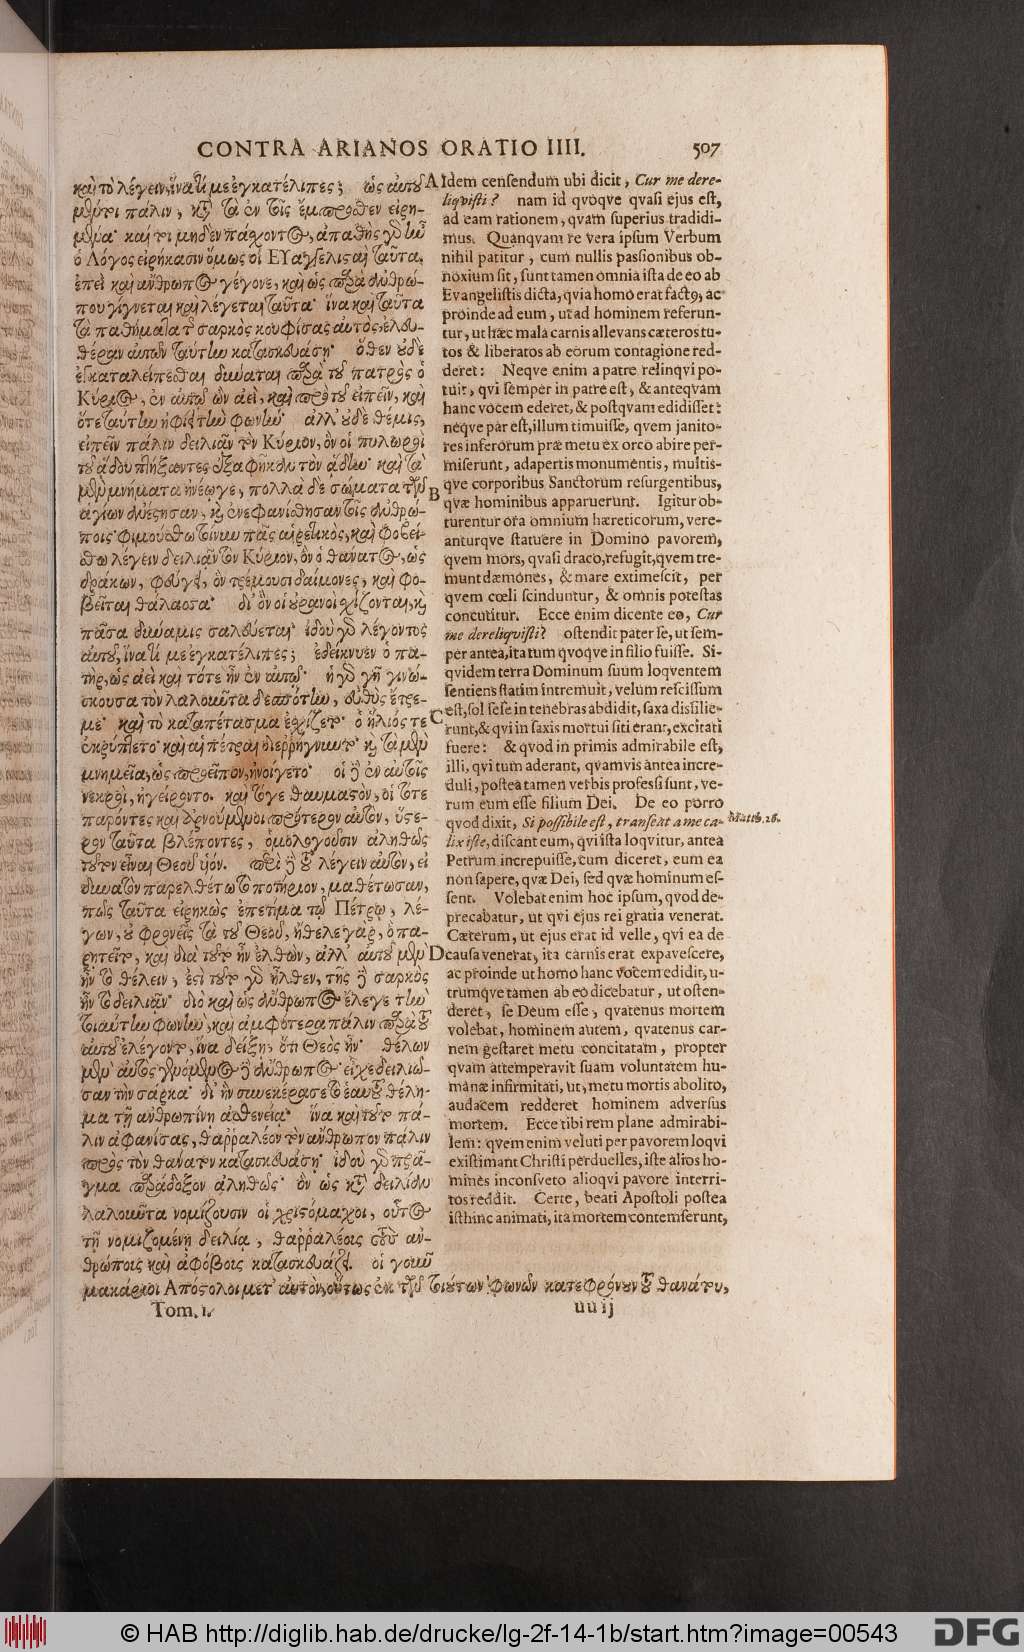 CONTRA ARIANOS ORATIO IIII. 507
καὶ τὸ λέγειν, ἵνα τί με ἐγκατέλιπες; ὡς αὐτοῦ
μένει πάλιν, κατὰ τὰ ἐν τοῖς ἔμπροσθεν εἰρη-
μένα·
ὁ Λόγος· εἰρήκασιν ὅμως οἱ ΕΥαγγελισταὶ ταῦτα,
ἐπεὶ καὶ ἄνθρωπος γέγονε, καὶ ὡς παρὰ ἀνθρώ-
που γίγνεται καὶ λέγεται ταῦτα· ἵνα καὶ ταῦτα
τὰ παθήματα τῆς σαρκὸς κουφίσας αὐτὸς, ἐλευ-
θέραν αὐτῶν ταύτην κατασκευάσῃ· ὅθεν οὐδὲ
ἐγκαταλείπεσθαι δύναται παρὰ τοῦ πατρὸς ὁ
Κύριος, ἐν αὐτῷ ὢν ἀεὶ, καὶ πρὸ τοῦ εἰπεῖν, καὶ
ὅτε ταύτην ἠφίει τὴν φωνήν· ἀλλ' οὐδὲ θέμις,
εἰπεῖν πάλιν δειλιᾶν τὸν Κύριον, ὃν οἱ πυλωροὶ
τοῦ ᾅδου πτήξαντες ἐξαφῆκαν τὸν ᾅδην· καὶ τὰ
μὲν μνήματα ἠνέῳγε, πολλὰ δὲ σώματα τῶν
ἁγίων ἀνέστησαν, καὶ ἐνεφανίσθησαν τοῖς ἀνθρώ-
ποις· φιμούσθω τοίνυν πᾶς αἱρετικὸς, καὶ φοβεί-
σθω λέγειν δειλιᾶν τὸν Κύριον, ὃν ὁ θάνατος, ὡς
δράκων, φεύγει, ὃν τρέμουσι δαίμονες, καὶ φο-
βεῖται θάλασσα· δι' ὃν οἱ οὐρανοὶ σχίζονται, καὶ
πᾶσα δύναμις σαλεύεται· ἰδοὺ γὰρ λέγοντος
αὐτοῦ, ἵνα τί με ἐγκατέλιπες; ἐδείκνυεν ὁ πα-
τὴρ, ὡς ἀεὶ καὶ τότε ἦν ἐν αὐτῷ· ἡ γὰρ γῆ γινώ-
σκουσα τὸν λαλοῦντα δεσπότην, εὐθὺς ἔτρε-
με· καὶ τὸ καταπέτασμα ἐσχίζετο· ὁ ἥλιός τε
ἐκρύπτετο· καὶ αἱ πέτραι διεῤῥήγνυντο· καὶ τὰ μὲν
μνημεῖα, ὡς προεῖπον, ἠνοίγετο· οἱ δὲ ἐν αὐτοῖς
νεκροὶ, ἠγείροντο. καὶ τό γε θαυμαστὸν, οἱ τότε
παρόντες καὶ ἀρνούμενοι πρότερον αὐτὸν, ὕστε-
ρον ταῦτα βλέποντες, ὁμολογοῦσιν ἀληθῶς
τοῦτον εἶναι Θεοῦ υἱόν. περὶ δὲ τοῦ λέγειν αὐτὸν, εἰ
δυνατὸν παρελθέτω τὸ ποτήριον, μαθέτωσαν,
πῶς ταῦτα εἰρηκὼς ἐπετίμα τῷ Πέτρῳ, λέ-
γων, οὐ φρονεῖς τὰ τοῦ Θεοῦ, ἤθελε γὰρ, ὃ πα-
ρῃτεῖτο, καὶ διὰ τοῦτο ἦν ἐλθὼν, ἀλλ' αὐτοῦ μὲν
ἦν τὸ θέλειν, ἐπὶ τοῦτο γὰρ ἦλθεν, τῆς δὲ σαρκὸς
ἦν τὸ δειλιᾶν· διὸ καὶ ὡς ἄνθρωπος ἔλεγε τὴν
τοιαύτην φωνὴν, καὶ ἀμφότερα πάλιν παρὰ τοῦ
αὐτοῦ ἐλέγοντο, ἵνα δείξῃ, ὅτι Θεὸς ἦν· θέλων
μὲν αὐτὸς γενόμενος δὲ ἄνθρωπος εἶχε δειλιῶ-
σαν τὴν σάρκα· δι' ἣν συνεκέρασε τὸ ἑαυτοῦ θέλη-
μα τῇ ἀνθρωπίνῃ ἀσθενείᾳ· ἵνα καὶ τοῦτο πά-
λιν ἀφανίσας, θαῤῥαλέον τὸν ἄνθρωπον πάλιν
πρὸς τὸν θάνατον κατασκευάσῃ· ἰδοὺ γοῦν πρᾶ-
γμα παράδοξον ἀληθῶς· ὃν ὡς κατὰ δειλίαν
λαλοῦντα νομίζουσιν οἱ χριστόμαχοι, οὗτος
τῇ νομιζομένῃ δειλίᾳ, θαῤῥαλέους τοὺς ἀν-
θρώποις καὶ ἀφόβοις κατασκευάζει. οἱ γοῦν
μακάριοι Απόστολοι μετ' αὐτὸν, οὕτως ἐκ τῶν τοιούτων φωνῶν κατεφρόνουν τοῦ θανάτου,
A Idem censendum ubi dicit, Cur me dere-
liqvisti? nam id qvoqve qvasi ejus est,
ad eam rationem, qvam superius tradidi-
mus. Qvanqvam re vera ipsum Verbum
nihil patitur, cum nullis passionibus ob-
noxium sit, sunt tamen omnia ista de eo ab
Evangelistis dicta, qvia homo erat factꝰ, ac
proinde ad eum, ut ad hominem referun-
tur, ut hæc mala carnis allevans cæteros tu-
tos & liberatos ab eorum contagione red-
deret: Neqve enim a patre relinqvi po-
tuit, qvi semper in patre est, & anteqvam
hanc vocem ederet, & postqvam edidisset:
neqve par est, illum timuisse, qvem janito-
res inferorum præ metu ex orco abire per-
miserunt, adapertis monumentis, multis-
qve corporibus Sanctorum resurgentibus,
B qvæ hominibus apparuerunt. Igitur ob-
turentur ora omnium hæreticorum, vere-
anturqve statuere in Domino pavorem,
qvem mors, qvasi draco, refugit, qvem tre-
munt dæmones, & mare extimescit, per
qvem cœli scinduntur, & omnis potestas
concutitur. Ecce enim dicente eo, Cur
me dereliqvisti? ostendit pater se, ut sem-
per antea, ita tum qvoqve in filio fuisse. Si-
qvidem terra Dominum suum loqventem
sentiens statim intremuit, velum rescissum
C est, sol sese in tenebras abdidit, saxa dissilie-
runt, & qvi in saxis mortui siti erant, excitati
fuere: & qvod in primis admirabile est,
illi, qvi tum aderant, qvamvis antea incre-
duli, postea tamen verbis professi sunt, ve-
rum eum esse filium Dei. De eo porro
qvod dixit, Si possibile est, transeat a me ca-
Matth. 26.
lix iste, discant eum, qvi ista loqvitur, antea
Petrum increpuisse, cum diceret, eum ea
non sapere, qvæ Dei, sed qvæ hominum es-
sent. Volebat enim hoc ipsum, qvod de-
precabatur, ut qvi ejus rei gratia venerat.
Cæterum, ut ejus erat id velle, qvi ea de
D causa venerat, ita carnis erat expavescere,
ac proinde ut homo hanc vocem edidit, u-
trumqve tamen ab eo dicebatur, ut osten-
deret, se Deum esse, qvatenus mortem
volebat, hominem autem, qvatenus car-
nem gestaret metu concitatam, propter
qvam attemperavit suam voluntatem hu-
manæ infirmitati, ut, metu mortis abolito,
audacem redderet hominem adversus
mortem. Ecce tibi rem plane admirabi-
lem: qvem enim veluti per pavorem loqvi
existimant Christi perduelles, iste alios ho-
mines inconsveto alioqvi pavore interri-
tos reddit. Certe, beati Apostoli postea
isthinc animati, ita mortem contemserunt,
Tom. I. uu ij
© HAB http://diglib.hab.de/drucke/lg-2f-14-1b/start.htm?image=00543
DFG